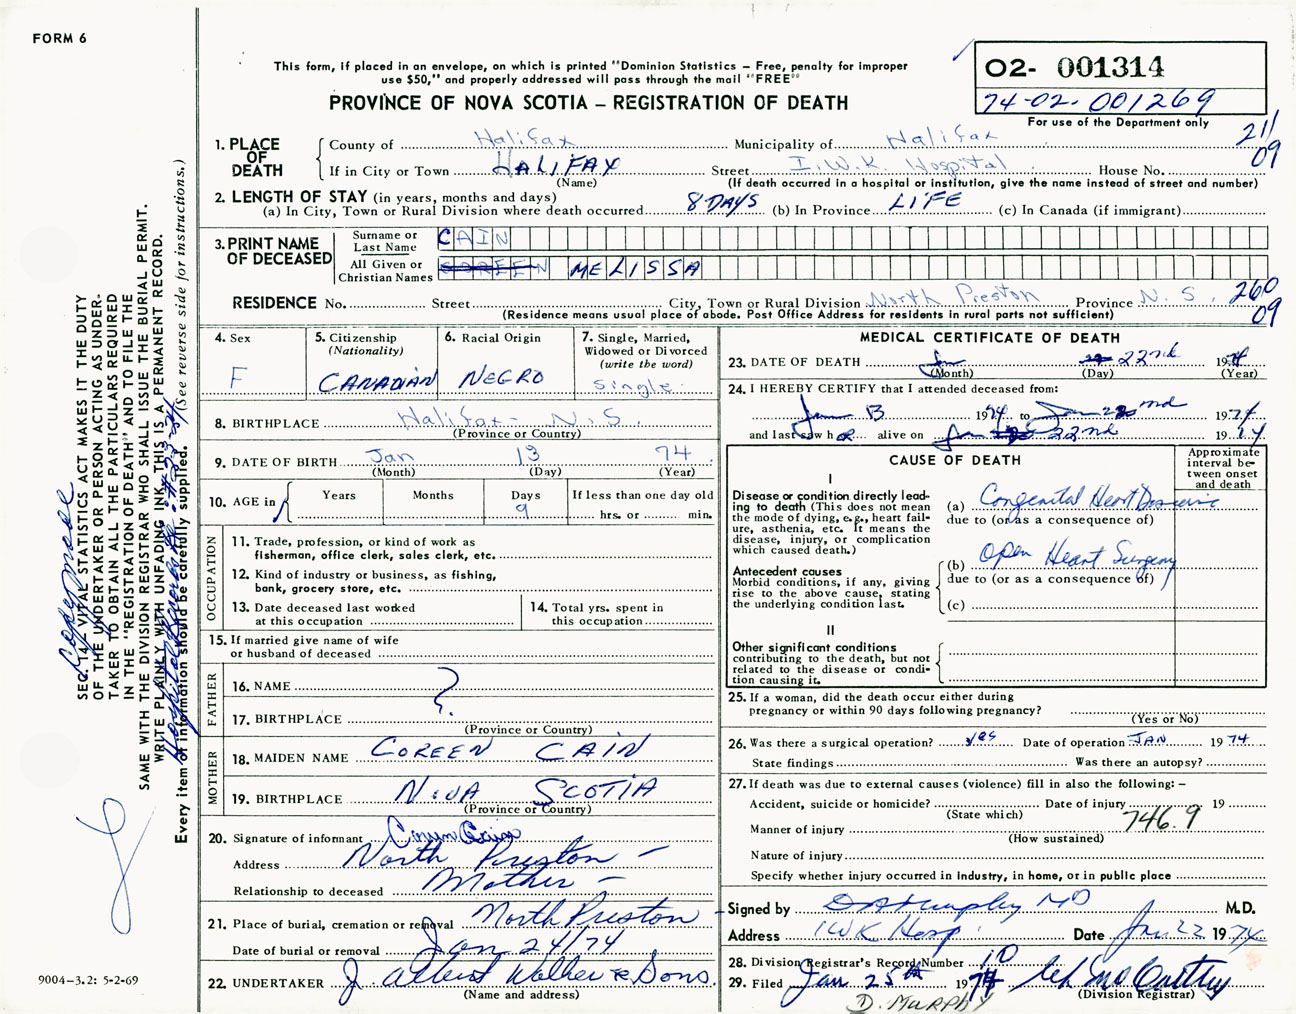 FORM 6
This form, if placed in an envelope, on which is printed "Dominion Statistics – Free, penalty for improper
use $50," and properly addressed will pass through the mail "FREE"
PROVINCE OF NOVA SCOTIA – REGISTRATION OF DEATH
02- 001314
74-02-001269
For use of the Department only
211
09
1. PLACE OF DEATH
County of Halifax Municipality of Halifax
If in City or Town HALIFAX Street I.W.K Hospital House No.
(Name) (If death occurred in a hospital or institution, give the name instead of street and number)
2. LENGTH OF STAY (in years, months and days)
(a) In City, Town or Rural Division where death occurred 8 DAYS (b) In Province LIFE (c) In Canada (if immigrant)
3. PRINT NAME OF DECEASED
Surname or Last Name CAIN
All Given or Christian Names MELISSA
RESIDENCE No. Street City, Town or Rural Division North Preston Province N.S. 260
(Residence means usual place of abode. Post Office Address for residents in rural parts not sufficient) 09
4. Sex F
5. Citizenship (Nationality) CANADIAN
6. Racial Origin NEGRO
7. Single, Married, Widowed or Divorced (write the word) single
8. BIRTHPLACE Halifax - N.S.
(Province or Country)
9. DATE OF BIRTH Jan 13 74
(Month) (Day) (Year)
10. AGE in Years Months Days 9 If less than one day old
hrs. or min.
OCCUPATION
11. Trade, profession, or kind of work as
fisherman, office clerk, sales clerk, etc.
12. Kind of industry or business, as fishing,
bank, grocery store, etc.
13. Date deceased last worked
at this occupation
14. Total yrs. spent in
this occupation
15. If married give name of wife
or husband of deceased
FATHER
16. NAME ?
17. BIRTHPLACE
(Province or Country)
MOTHER
18. MAIDEN NAME COREEN CAIN
19. BIRTHPLACE NOVA SCOTIA
(Province or Country)
20. Signature of informant Cain
Address North Preston –
Relationship to deceased Mother –
21. Place of burial, cremation or removal North Preston
Date of burial or removal Jan 24/74
22. UNDERTAKER J. Albert Walker & Sons.
(Name and address)
MEDICAL CERTIFICATE OF DEATH
23. DATE OF DEATH Jan 22nd 1974
(Month) (Day) (Year)
24. I HEREBY CERTIFY that I attended deceased from:
Jan 13 1974 to Jan 22nd 1974
and last saw her alive on Jan 22nd 1974
CAUSE OF DEATH
Approximate interval between onset and death
I
Disease or condition directly leading to death (This does not
mean the mode of dying, e.g., heart failure, asthenia, etc. It means the
disease, injury, or complication
which caused death.)
(a) Congenital Heart Disease
due to (or as a consequence of)
Antecedent causes
Morbid conditions, if any, giving
rise to the above cause, stating
the underlying condition last.
(b) Open Heart Surgery
due to (or as a consequence of)
(c)
II
Other significant conditions
contributing to the death, but not
related to the disease or condition
causing it.
25. If a woman, did the death occur either during
pregnancy or within 90 days following pregnancy?
(Yes or No)
26. Was there a surgical operation? yes Date of operation JAN 1974
State findings Was there an autopsy?
27. If death was due to external causes (violence) fill in also the following: –
Accident, suicide or homicide? Date of injury 19
(State which) 746.9
Manner of injury
(How sustained)
Nature of injury
Specify whether injury occurred in industry, in home, or in public place
Signed by D A Murphy MD M.D.
Address IWK Hosp. Date Jan 22 1974
28. Division Registrar's Record Number 10
29. Filed Jan 25th 1974 McCarthy
(Division Registrar)
D. MURPHY
SEC. 14, VITAL STATISTICS ACT MAKES IT THE DUTY
OF THE UNDERTAKER OR PERSON ACTING AS UNDER-
TAKER TO OBTAIN ALL THE PARTICULARS REQUIRED
IN THE "REGISTRATION OF DEATH" AND TO FILE THE
SAME WITH THE DIVISION REGISTRAR WHO SHALL ISSUE THE BURIAL PERMIT.
WRITE PLAINLY WITH UNFADING INK. THIS IS A PERMANENT RECORD.
Every item of information should be carefully supplied. (See reverse side for instructions.)
9004-3.2: 5-2-69